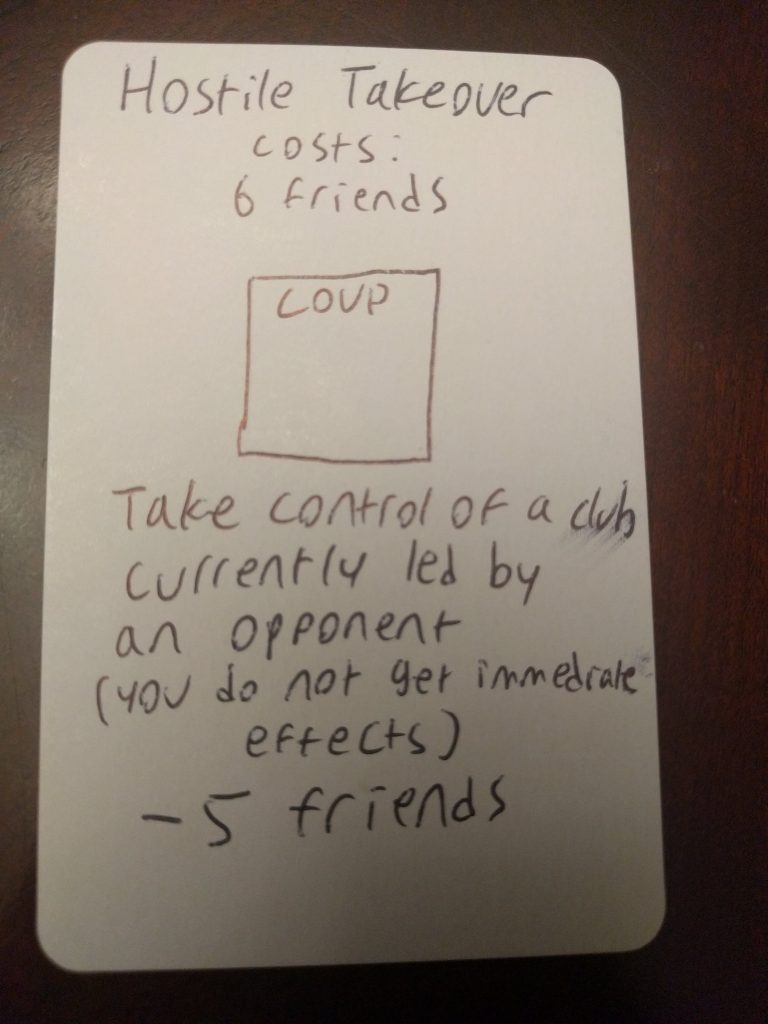 Hostile Takeover
costs:
6 friends
COUP
Take control of a club
currently led by
an opponent
(you do not get immediate
effects)
- 5 friends